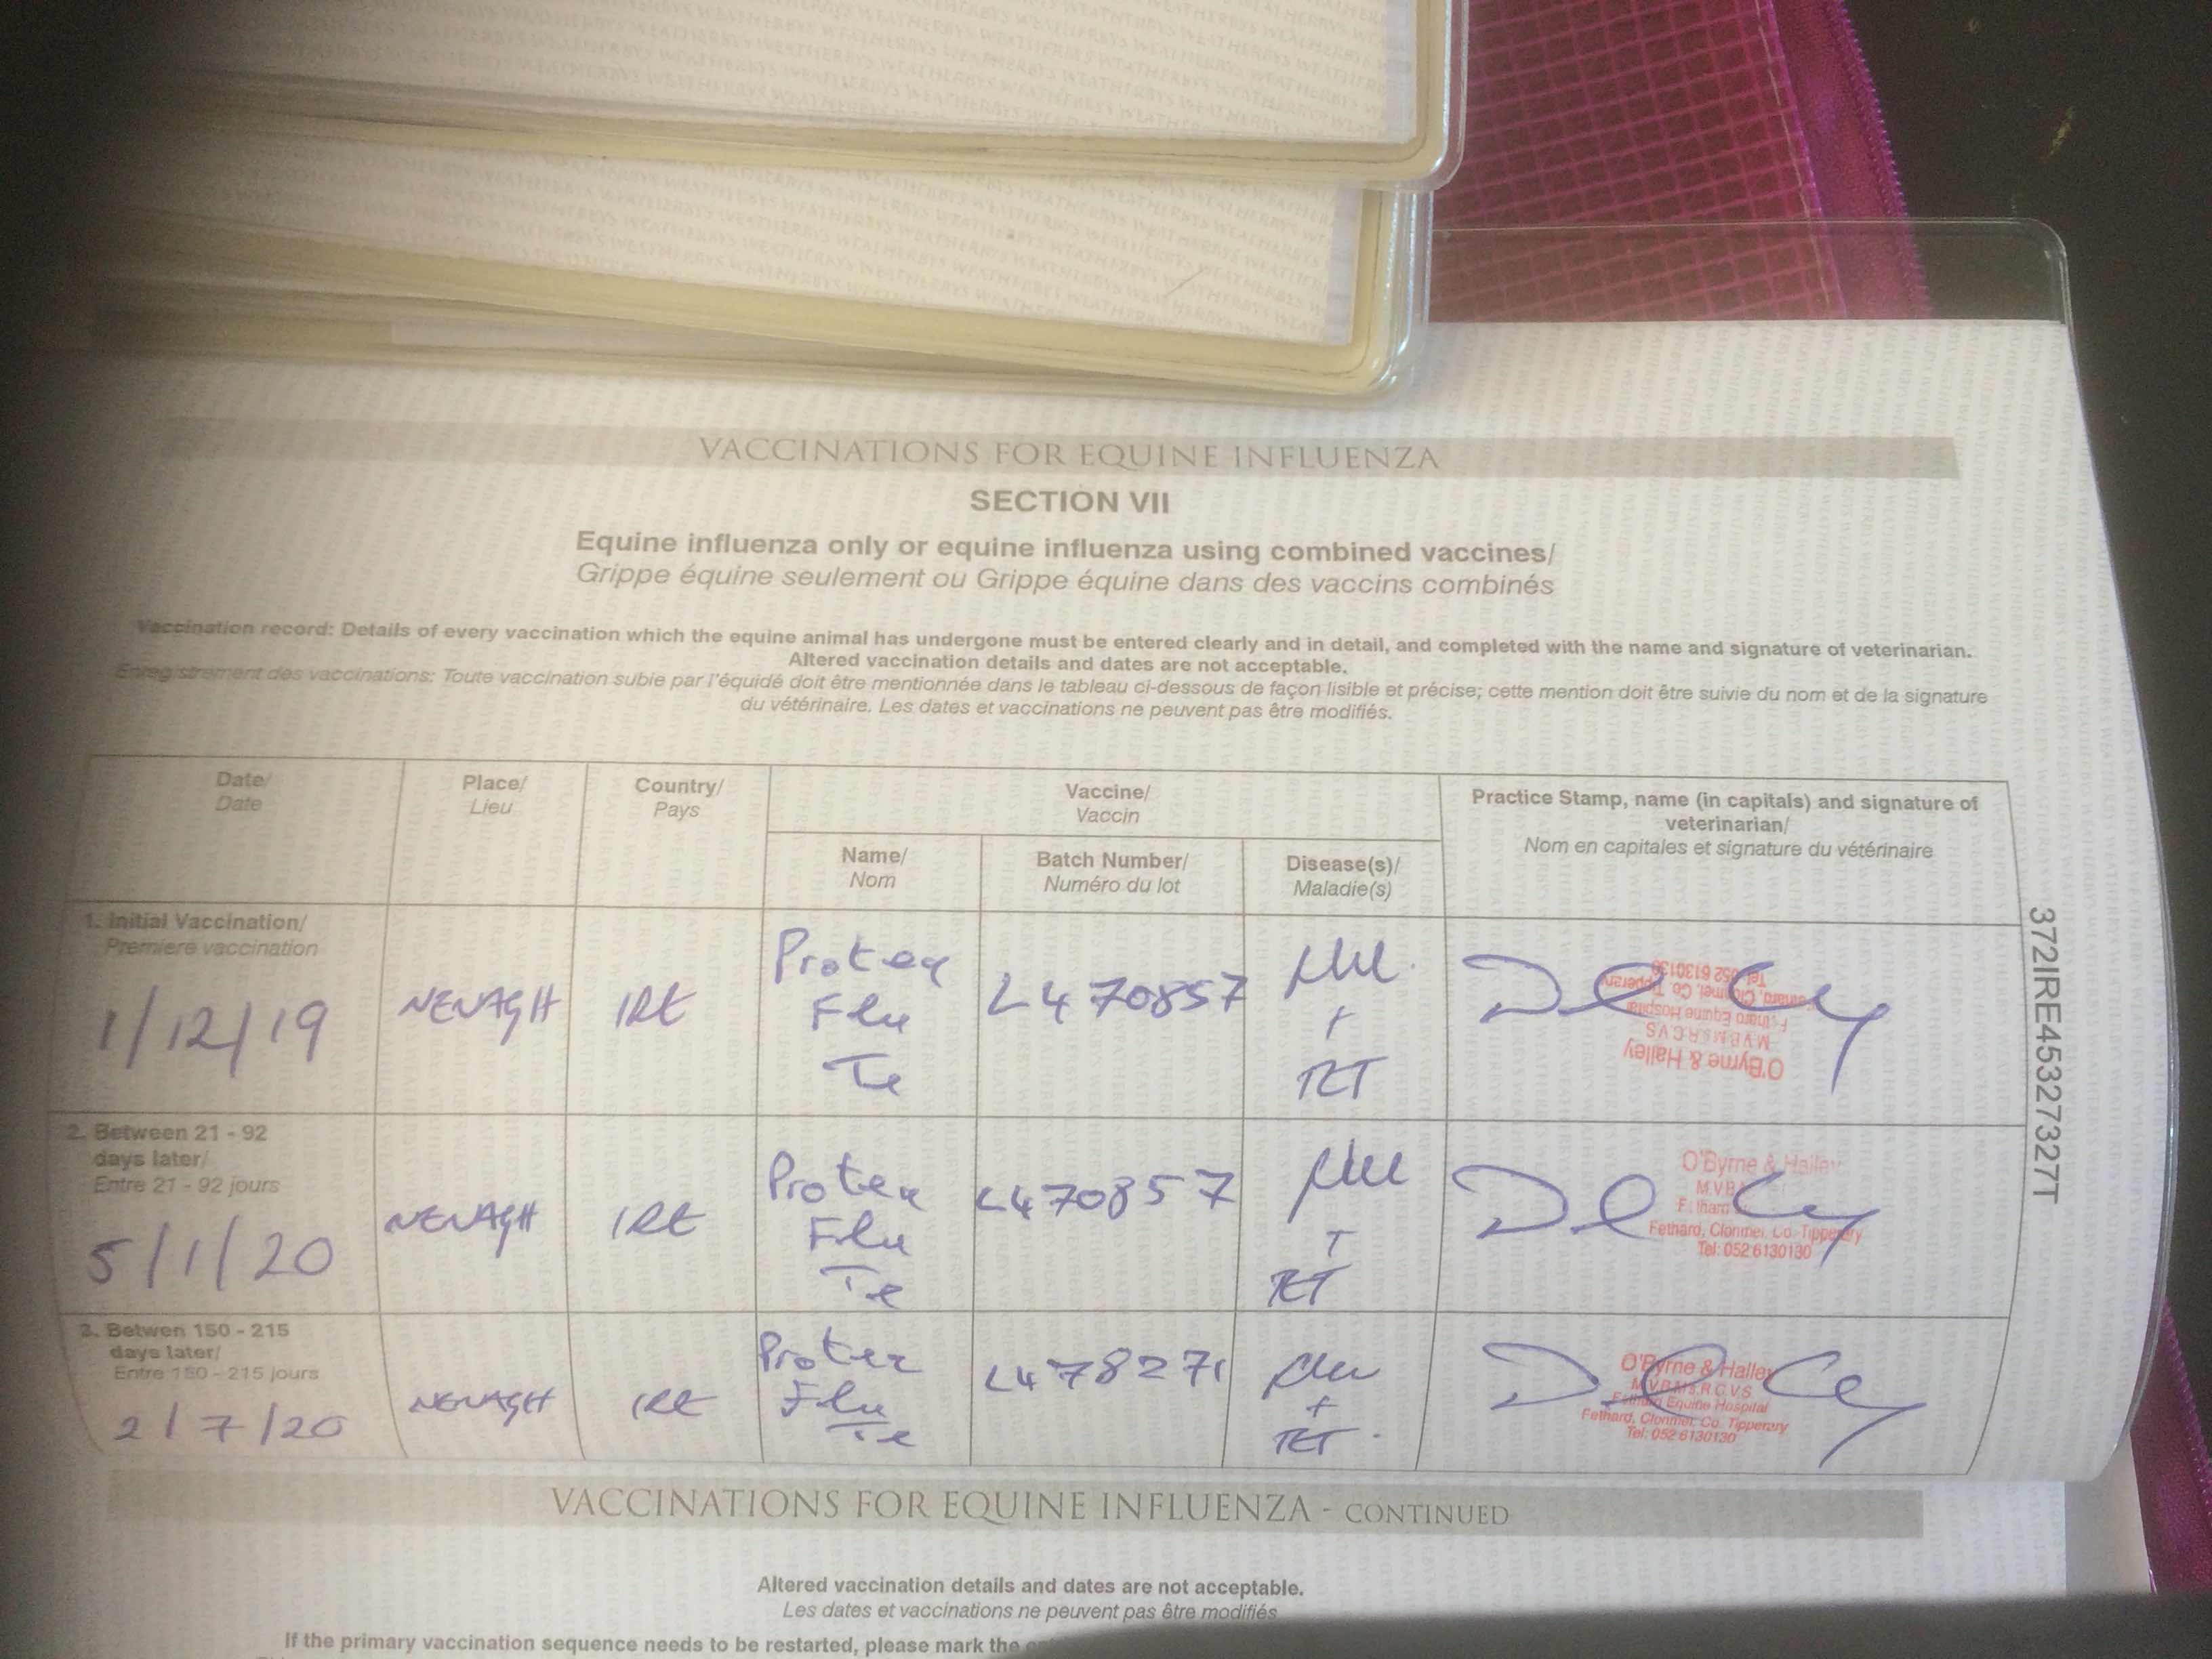 VACCINATIONS FOR EQUINE INFLUENZA
SECTION VII
Equine influenza only or equine influenza using combined vaccines/
Grippe équine seulement ou Grippe équine dans des vaccins combinés
Vaccination record: Details of every vaccination which the equine animal has undergone must be entered clearly and in detail, and completed with the name and signature of veterinarian.
Altered vaccination details and dates are not acceptable.
Enregistrement des vaccinations: Toute vaccination subie par l'équidé doit être mentionnée dans le tableau ci-dessous de façon lisible et précise; cette mention doit être suivie du nom et de la signature
du vétérinaire. Les dates et vaccinations ne peuvent pas être modifiés.
Date/
Date
Place/
Lieu
Country/
Pays
Vaccine/
Vaccin
Name/
Nom
Batch Number/
Numéro du lot
Disease(s)/
Maladie(s)
Practice Stamp, name (in capitals) and signature of
veterinarian/
Nom en capitales et signature du vétérinaire
1. Initial Vaccination/
Premiere vaccination
1/12/19
NENAGH
IRE
Proteq
Flu
Te
L470857
Flu
+
TET
O'Byrne & Halley
M.V.B. M.R.C.V.S
Equine Hospital
Clonmel, Co. Tipperary
Tel: 052 6130130
2. Between 21 - 92
days later/
Entre 21 - 92 jours
5/1/20
NENAGH
IRE
Proteq
Flu
Te
L470857
Flu
+
TET
O'Byrne & Halley
M.V.B
Fethard, Clonmel, Co. Tipperary
Tel: 052 6130130
3. Betwen 150 - 215
days later/
Entre 150 - 215 jours
2/7/20
NENAGH
IRE
Proteq
Flu
Te
L478271
Flu
+
TET
O'Byrne & Halley
M.V.B. M.R.C.V.S.
Fethard Equine Hospital
Fethard, Clonmel, Co. Tipperary
Tel: 052 6130130
372IRE45327327T
VACCINATIONS FOR EQUINE INFLUENZA - CONTINUED
Altered vaccination details and dates are not acceptable.
Les dates et vaccinations ne peuvent pas être modifiés
If the primary vaccination sequence needs to be restarted, please mark the